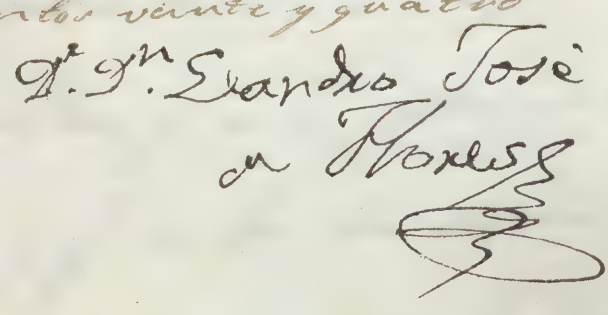 ntos veinte y quatro
Dr. Dn. Leandro José
de Flores